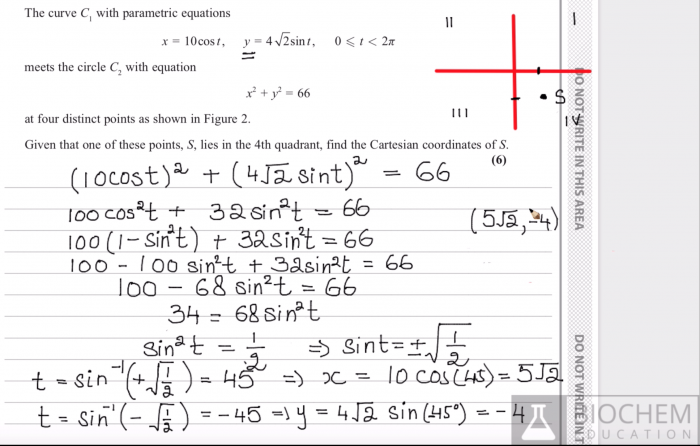 The curve C₁ with parametric equations
x = 10cos t, y = 4√2 sin t, 0 ⩽ t < 2π
meets the circle C₂ with equation
x² + y² = 66
at four distinct points as shown in Figure 2.
Given that one of these points, S, lies in the 4th quadrant, find the Cartesian coordinates of S.
(6)
II
I
S
III
IV
(10cost)² + (4√2 sint)² = 66
100 cos²t + 32 sin²t = 66
(5√2, -4)
100 (1 - sin²t) + 32 sin²t = 66
100 - 100 sin²t + 32 sin²t = 66
100 - 68 sin²t = 66
34 = 68 sin²t
sin²t = 1/2 ⇒ sint = ±√1/2
t = sin⁻¹(+√1/2) = 45° ⇒ x = 10 cos(45) = 5√2
t = sin⁻¹(-√1/2) = -45 ⇒ y = 4√2 sin(45°) = -4
DO NOT WRITE IN THIS AREA
DO NOT WRITE IN T
BIOCHEM
EDUCATION